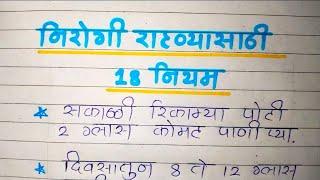 निरोगी राहण्यासाठी
18 नियम
* सकाळी रिकाम्या पोटी
२ ग्लास कोमट पाणी प्या.
* दिवसातुन 8 ते 12 ग्लास